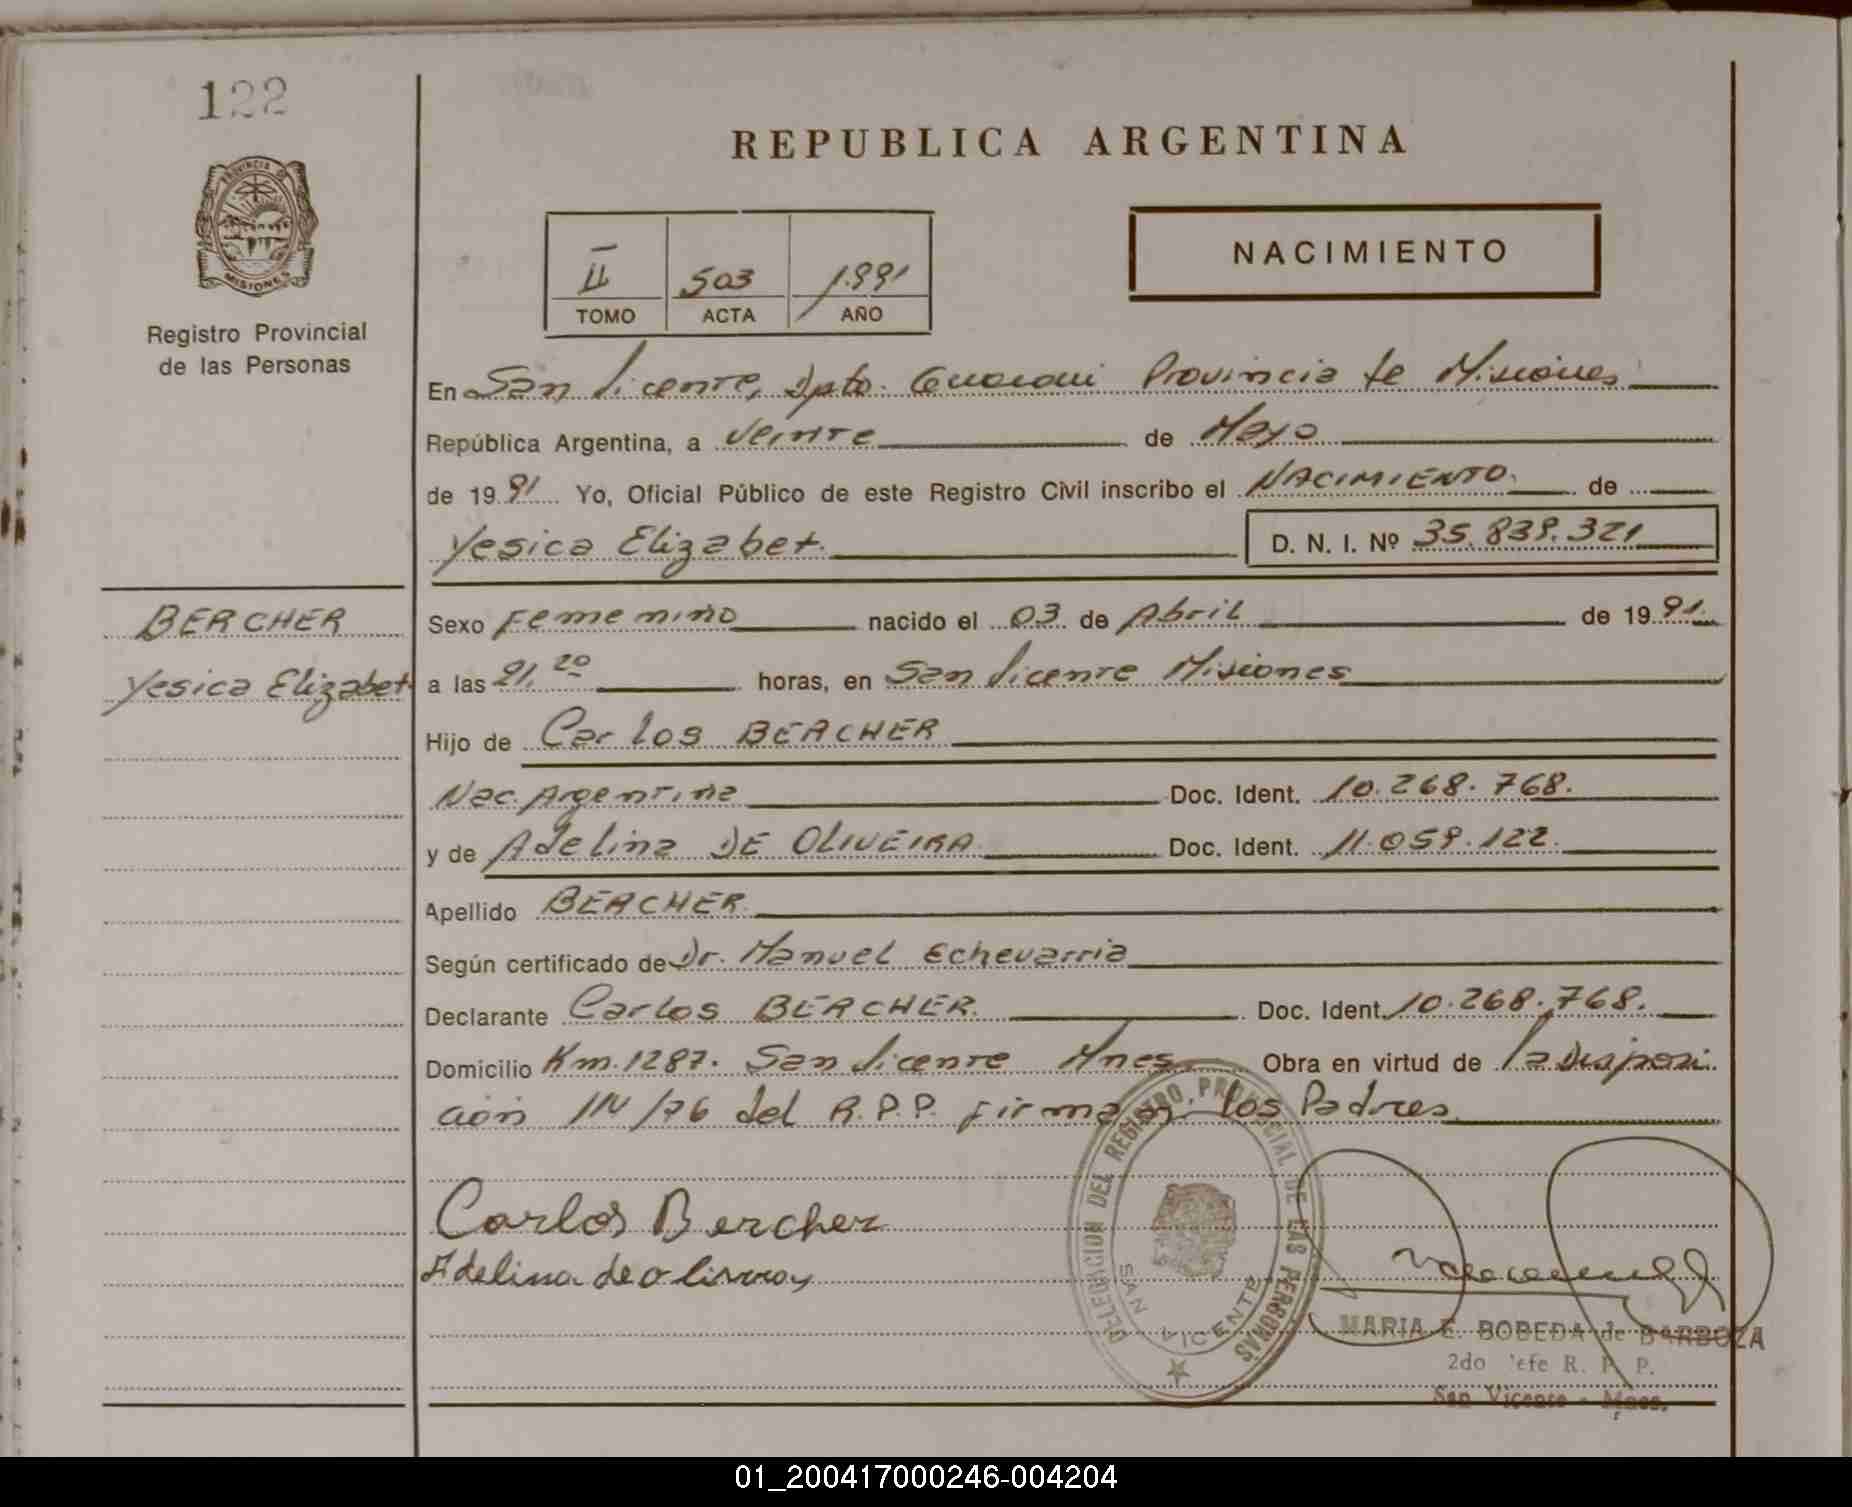 122
PROVINCIA DE
MISIONES
Registro Provincial
de las Personas
REPUBLICA ARGENTINA
II 503 1.991
TOMO ACTA AÑO
NACIMIENTO
En San Vicente, Dpto. Guarani Provincia de Misiones
República Argentina, a Veinte de Mayo
de 1991 Yo, Oficial Público de este Registro Civil inscribo el NACIMIENTO. de
Yesica Elizabet. D. N. I. Nº 35.839.321
BERCHER
Yesica Elizabet
Sexo Femenino nacido el 03 de Abril de 1991.
a las 21,20 horas, en San Vicente Misiones
Hijo de Carlos BERCHER
Nac. Argentina Doc. Ident. 10.268.768.
y de Adelina DE OLIVEIRA Doc. Ident. 11.059.122.
Apellido BERCHER.
Según certificado de Dr. Manuel Echevarria
Declarante Carlos BERCHER. Doc. Ident. 10.268.768.
Domicilio Km. 1287. San Vicente Mnes Obra en virtud de la Disposi
ción 111/76 del R.P.P. firman los Padres
Carlos Bercher
Adelina de
DELEGACION DEL REGISTRO PROVINCIAL DE LAS PERSONAS
SAN VICENTE
MARIA E. BOBEDA de BARBOZA
2do Jefe R. P. P.
San Vicente - Mnes.
01_200417000246-004204